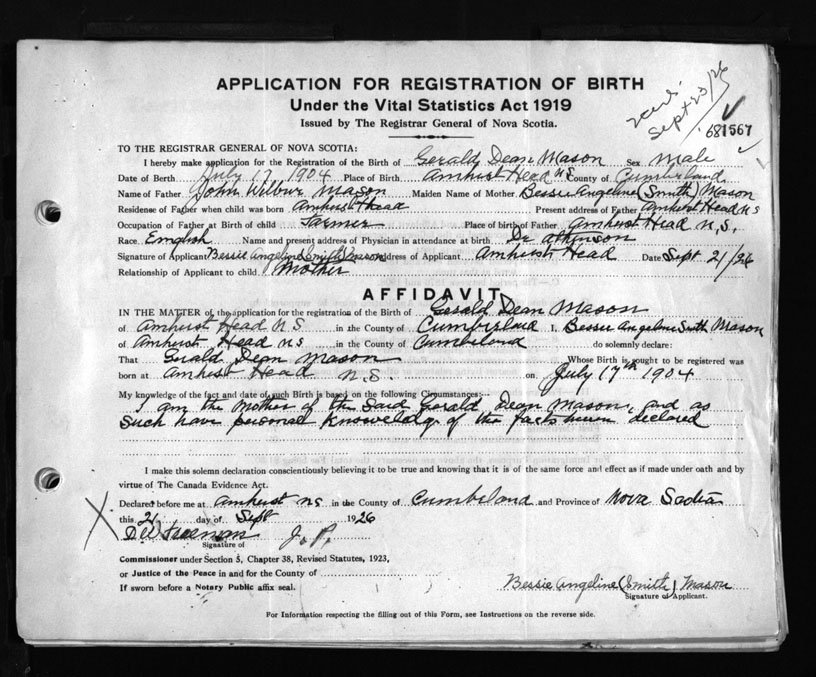 APPLICATION FOR REGISTRATION OF BIRTH
Under the Vital Statistics Act 1919
Issued by The Registrar General of Nova Scotia.
Sept 23/26
681567
TO THE REGISTRAR GENERAL OF NOVA SCOTIA:
I hereby make application for the Registration of the Birth of Gerald Dean Mason Sex Male
Date of Birth July 17 1904 Place of Birth Amherst Head N S County of Cumberland
Name of Father John Wilbur Mason Maiden Name of Mother Bessie Angeline (Smith) Mason
Residence of Father when child was born Amherst Head Present address of Father Amherst Head N S
Occupation of Father at Birth of child Farmer Place of birth of Father Amherst Head N.S.
Race English Name and present address of Physician in attendance at birth Dr Atkinson
Signature of Applicant Bessie Angeline (Smith) Mason Address of Applicant Amherst Head Date Sept 21/26
Relationship of Applicant to child Mother
AFFIDAVIT
IN THE MATTER of the application for the registration of the Birth of Gerald Dean Mason
of Amherst Head N S in the County of Cumberland I, Bessie Angeline Smith Mason
of Amherst Head N S in the County of Cumbeland do solemnly declare:
That Gerald Dean Mason Whose Birth is sought to be registered was
born at Amhest Head N.S. on July 17th 1904
My knowledge of the fact and date of such Birth is based on the following Circumstances:—
I am the Mother of the Said Gerald Dean Mason, and as
Such have personal knoweldge of the facts herein declared
I make this solemn declaration conscientiously believing it to be true and knowing that it is of the same force and effect as if made under oath and by
virtue of The Canada Evidence Act.
Declared before me at Amherst NS in the County of Cumbeland and Province of Nova Scotia
this 21 day of Sept 1926
X
Freeman J. P.
Signature of
Commissioner under Section 5, Chapter 38, Revised Statutes, 1923,
or Justice of the Peace in and for the County of
If sworn before a Notary Public affix seal.
Bessie Angeline (Smith) Mason
Signature of Applicant.
For Information respecting the filling out of this Form, see Instructions on the reverse side.